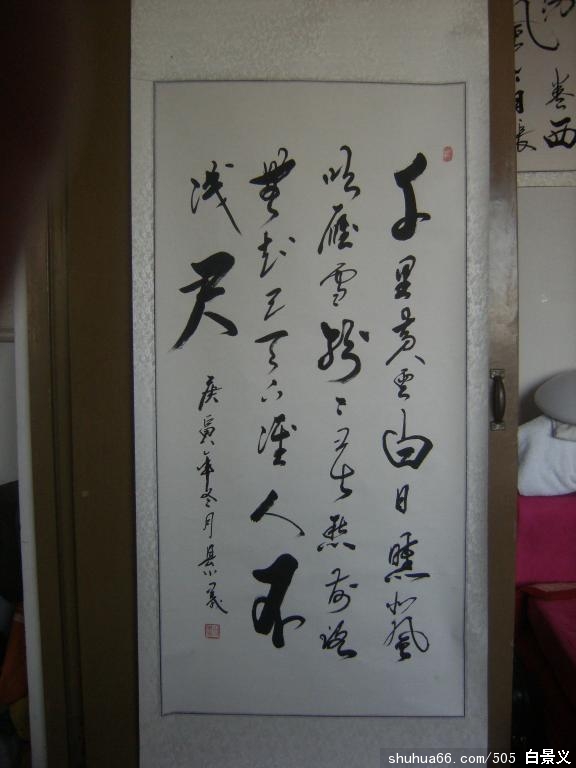 千里黄雲白日曛北風
吹雁雪紛〻莫愁前路
無知己天下誰人不
識君
庚寅年冬月景義
卷西
shuhua66.com/505 白景义